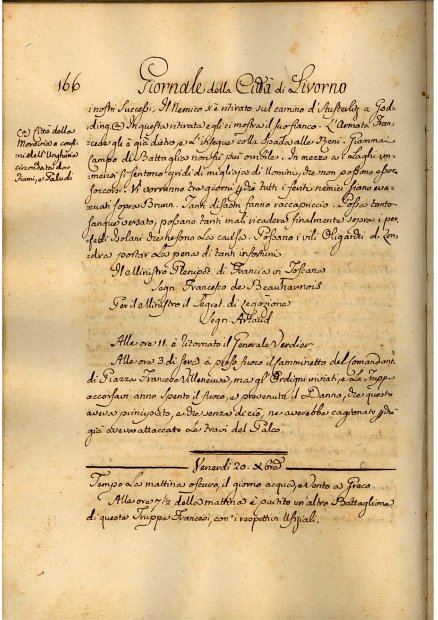 166
Giornale della Città di Livorno
i nostri Successi. Il Nemico si è ritirato sul camino d'Austerlitz a God-
ding. In questa ritirata egli ci mostra il suo fianco. L'Armata Fran-
cese gli è già dietro, e l'insegue colla Spada alle Reni. Giammai
Campo di Battaglia non fù più orribile. In mezzo a Laghi im-
mensi si sentono i gridi di migliaja di Uomini, che non possono esser
soccorsi. Vi vorranno tre giorni perche tutti i feriti nemici siano eva-
cuati sopra Brunn. Tanti disastri fanno raccapriccio. Possa tanto
sangue versato, possano tanti mali ricadere finalmente sopra i per-
fidi Isolani che ne sono la causa. Possano i vili Oligarchi di Lon-
dra portar la pena di tanti infortunj
(a) Città della
Moravia a confi-
ni dell'Ungheria
circondata da
Fiumi, e Paludi
Il Ministro Plenipo. di Francia in Toscana
Segn. Francesco de Beauharnois
Per il Ministro il Segret. di Legazione
Segn. Artaud
Alle ore 11. è ritornato il Generale Verdier
Alle ore 3 di sera à preso fuoco il camminetto del Comandante
di Piazza Francese Villeneuve, ma gl'Ordigni inviati, e la Truppa
accorsavi anno spento il fuoco, e provenuto il Danno, che questo
aveva principiato, e che senza di ciò, ne averebbe cagionato perche
già aveva attaccato le travi del Palco.
Venerdi 20. Xbre
Tempo la mattina oscuro, il giorno acqua, e Vento a Greco.
Alle ore 7 1/2 della mattina è partito un'altro Battaglione
di questa Truppa Francese, con i rispettivi Ufiziali.